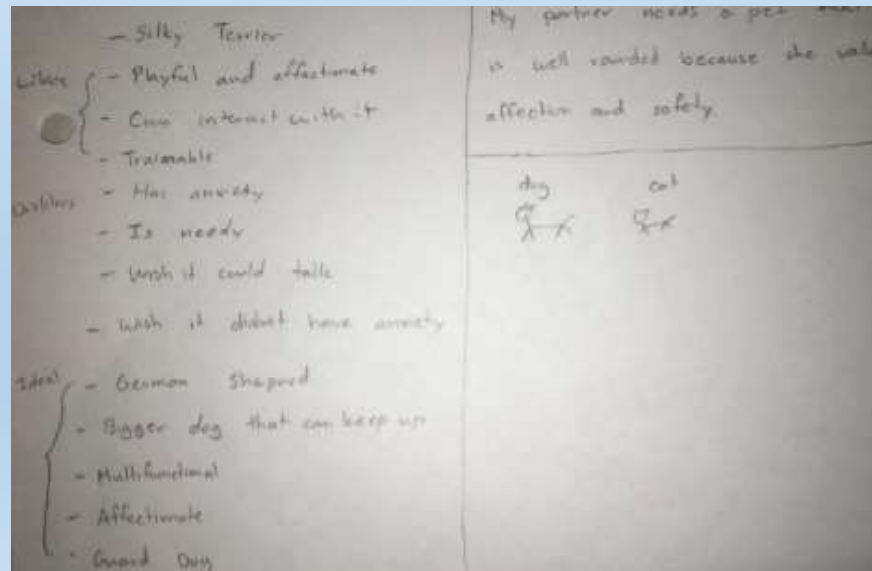 - Silky Terrier
Likes - Playful and affectionate
- Can interact with it
- Trainable
Dislikes - Has anxiety
- Is needy
- Wish it could talk
- Wish it didnt have anxiety
Ideal - German Shapard
- Bigger dog that can keep up
- Multifunctional
- Affectionate
- Guard Dog
My partner needs a pet
is well rounded because she
affection and safety.
dog cat